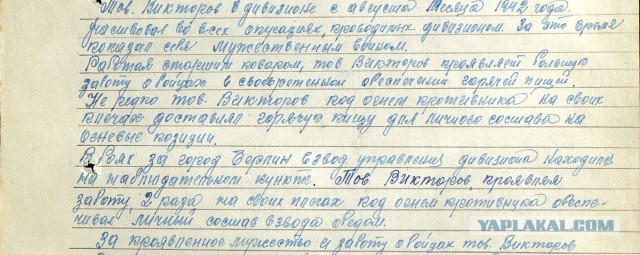 Тов. Викторов в дивизионе с августа месяца 1942 года.
Участвовал во всех операциях, проводимых дивизионом. За это время
показал себя мужественным воином.
Работая старшим поваром, тов Викторов проявляет большую
заботу о бойцах в своевременном обеспечении горячей пищей.
Не редко тов. Викторов под огнем противника на своих
плечах доставлял горячую пищу для личного состава на
огневые позиции.
В боях за город Берлин взвод управления дивизиона находился
на наблюдательном пункте. Тов Викторов, проявляя
заботу, 2 раза на своих плечах под огнем противника обеспе-
чивал личный состав взвода обедом.
За проявленное мужество и заботу о бойцах тов. Викторов
YAPLAKAL.COM